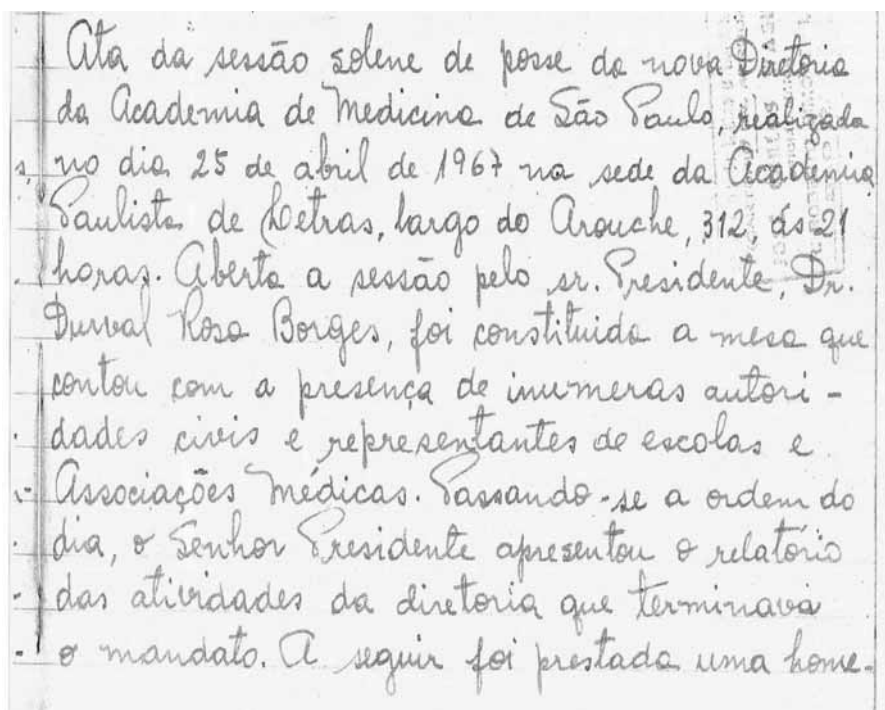 Ata da sessão solene de posse da nova Diretoria
da Academia de Medicina de São Paulo, realizada
no dia 25 de abril de 1967 na sede da Academia
Paulista de Letras, largo do Arouche, 312, ás 21
horas. Aberta a sessão pelo sr. Presidente, Dr.
Durval Rosa Borges, foi constituida a mesa que
contou com a presença de inumeras autori-
dades civis e representantes de escolas e
Associações médicas. Passando-se a ordem do
dia, o Senhor Presidente apresentou o relatório
das atividades da diretoria que terminava
o mandato. A seguir foi prestada uma home-